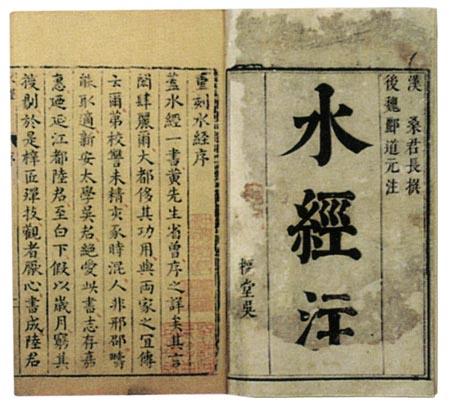 漢 桑君長撰
後魏酈道元注
水經注
堂吳
重刻水經序
蓋水經一書黃先生省曾序之詳矣其言
閎肆麗爾大都侈其功用與兩家之宜傳
云爾第校讐未精亥豕時混人非邢邵疇
能取適新安太學吳君絕愛此書志存嘉
惠迺延江都陸君至白下假以歲月窮其
搜剔於是梓匠殫技觀者厭心書成陸君